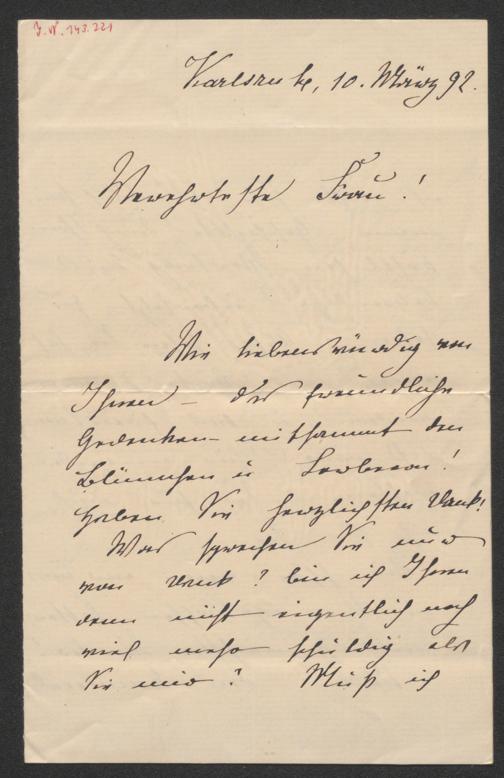 I.N. 143.221
Karlsruhe, 10. März 92.
Verehrteste Frau!
Wie liebenswürdig von
Ihnen – das freundliche
Gedenken mitsammt den
Blümchen u Lorbeern!
Haben Sie herzlichsten Dank!
Was sprechen Sie nur
von Dank? bin ich Ihnen
denn nicht eigentlich noch
viel mehr schuldig als
Sie mir? Muß ich